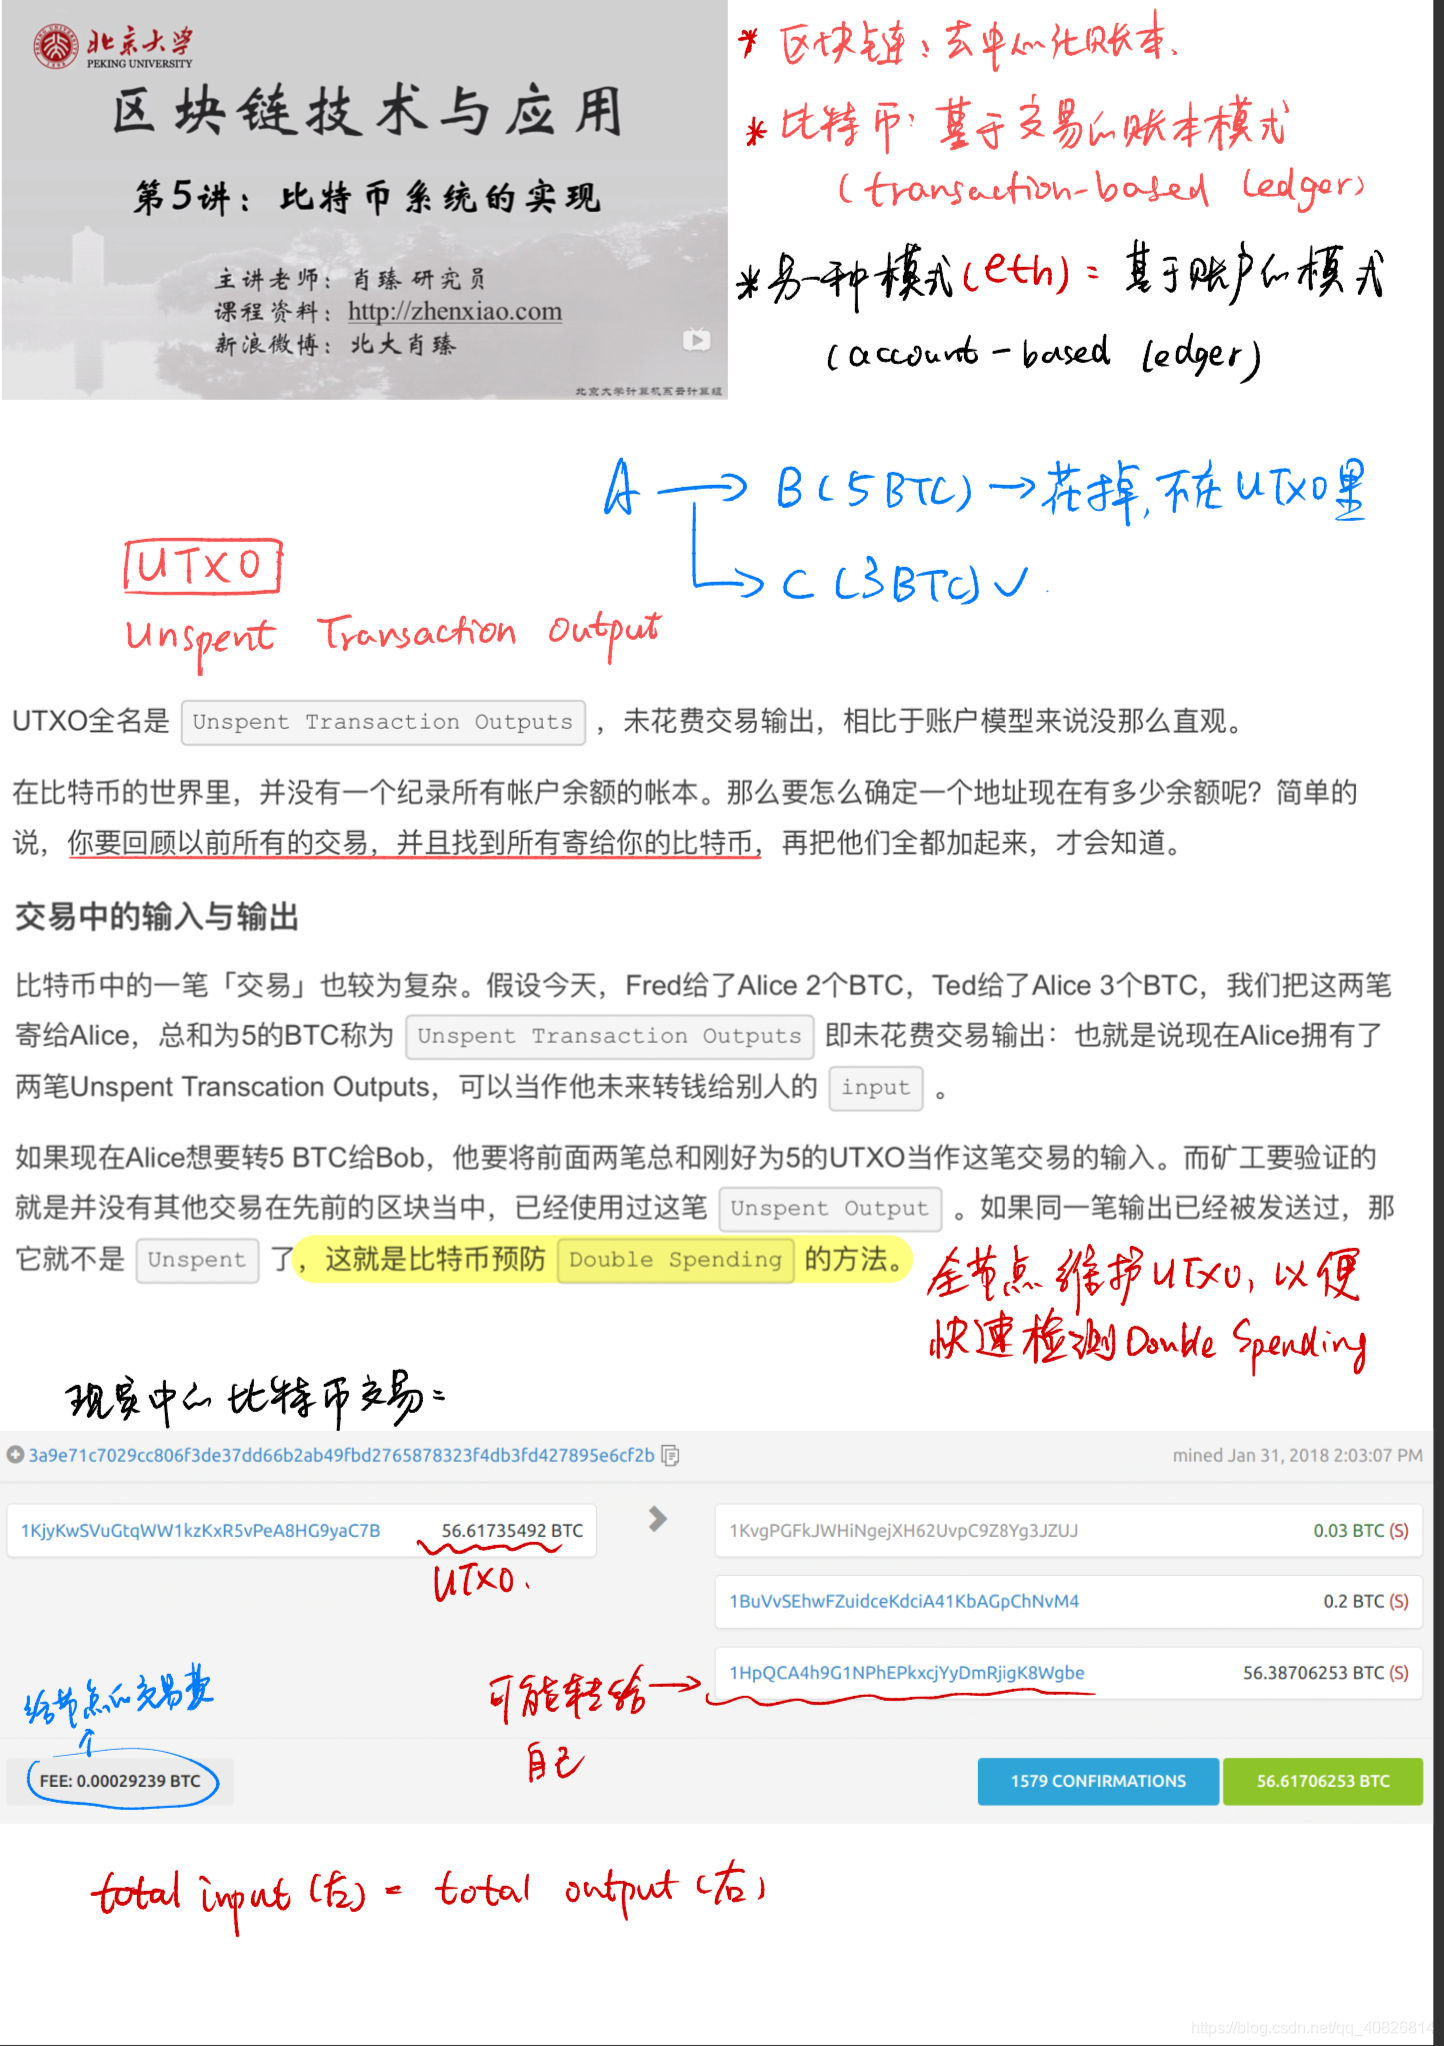 北京大学
PEKING UNIVERSITY
区块链技术与应用
第5讲：比特币系统的实现
主讲老师：肖臻 研究员
课程资料：http://zhenxiao.com
新浪微博：北大肖臻
北京大学计算机系云计算组
* 区块链：去中心化账本、
* 比特币：基于交易的账本模式
(transaction-based ledger)
*另一种模式(eth)：基于账户的模式
(account-based ledger)
A → B(5BTC) → 花掉,不在UTXO里
→ C(3BTC)✓
UTXO
Unspent Transaction Output
UTXO全名是 Unspent Transaction Outputs ，未花费交易输出，相比于账户模型来说没那么直观。
在比特币的世界里，并没有一个纪录所有帐户余额的帐本。那么要怎么确定一个地址现在有多少余额呢？简单的
说，你要回顾以前所有的交易，并且找到所有寄给你的比特币，再把他们全都加起来，才会知道。
交易中的输入与输出
比特币中的一笔「交易」也较为复杂。假设今天，Fred给了Alice 2个BTC，Ted给了Alice 3个BTC，我们把这两笔
寄给Alice，总和为5的BTC称为 Unspent Transaction Outputs 即未花费交易输出：也就是说现在Alice拥有了
两笔Unspent Transcation Outputs，可以当作他未来转钱给别人的 input 。
如果现在Alice想要转5 BTC给Bob，他要将前面两笔总和刚好为5的UTXO当作这笔交易的输入。而矿工要验证的
就是并没有其他交易在先前的区块当中，已经使用过这笔 Unspent Output 。如果同一笔输出已经被发送过，那
它就不是 Unspent 了，这就是比特币预防 Double Spending 的方法。
全节点维护UTXO,以便
快速检测Double Spending
现实中的比特币交易：
3a9e71c7029cc806f3de37dd66b2ab49fbd2765878323f4db3fd427895e6cf2b mined Jan 31, 2018 2:03:07 PM
1KjyKwSVuGtqWW1kzKxR5vPeA8HG9yaC7B 56.61735492 BTC
UTXO.
1KvgPGFkJWHiNgejXH62UvpC9Z8Yg3JZUJ 0.03 BTC (S)
1BuVvSEhwFZuidceKdciA41KbAGpChNvM4 0.2 BTC (S)
1HpQCA4h9G1NPhEPkxcjYyDmRjigK8Wgbe 56.38706253 BTC (S)
可能转给→
自己
给节点的交易费
FEE: 0.00029239 BTC
1579 CONFIRMATIONS
56.61706253 BTC
total input(左) = total output(右)
https://blog.csdn.net/qq_40826814